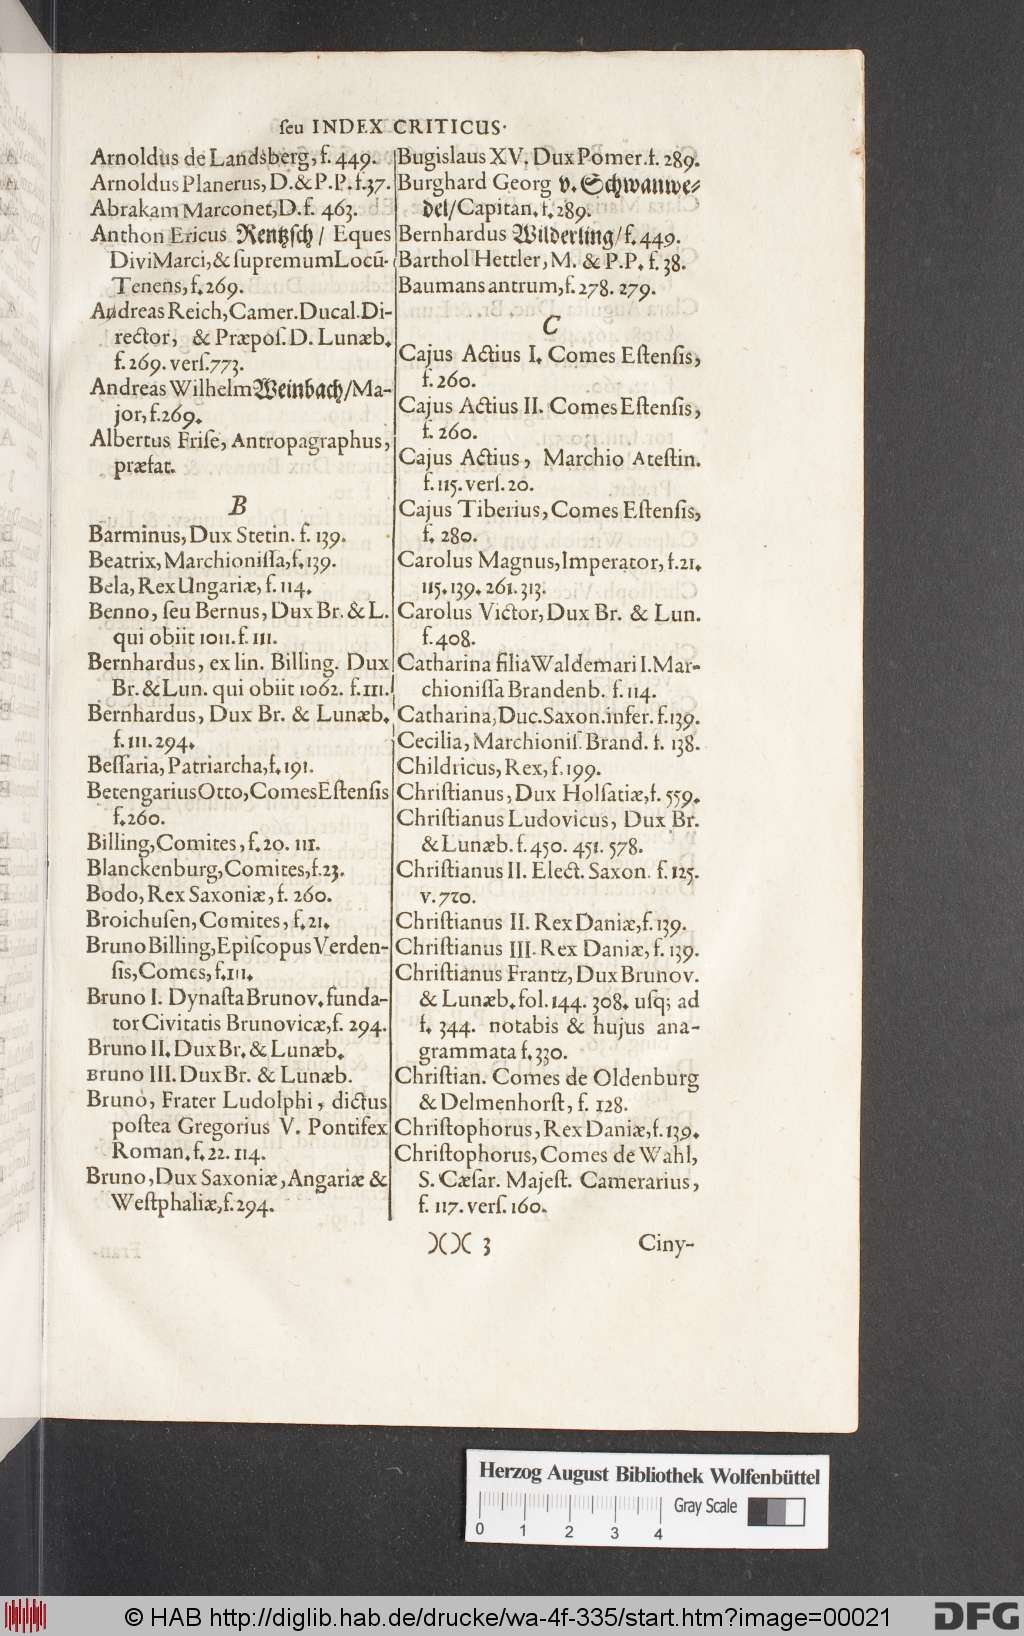 ſeu INDEX CRITICUS.
Arnoldus de Landsberg, f. 449.
Arnoldus Planerus, D. & P. P. f. 37.
Abrakam Marconet, D. f. 463.
Anthon Ericus Rentzſch / Eques
Divi Marci, & ſupremum Locū-
Tenens, f. 269.
Andreas Reich, Camer. Ducal. Di-
rector, & Præpoſ. D. Lunæb.
f. 269. verſ. 773.
Andreas Wilhelm Weinbach / Ma-
jor, f. 269.
Albertus Friſe, Antropagraphus,
præfat.
B
Barminus, Dux Stetin. f. 139.
Beatrix, Marchioniſſa, f. 139.
Bela, Rex Ungariæ, f. 114.
Benno, ſeu Bernus, Dux Br. & L.
qui obiit 1011. f. 111.
Bernhardus, ex lin. Billing. Dux
Br. & Lun. qui obiit 1062. f. 111.
Bernhardus, Dux Br. & Lunæb.
f. 111. 294.
Beſſaria, Patriarcha, f. 191.
Betengarius Otto, Comes Eſtenſis
f. 260.
Billing, Comites, f. 20. 111.
Blanckenburg, Comites, f. 23.
Bodo, Rex Saxoniæ, f. 260.
Broichuſen, Comites, f. 21.
Bruno Billing, Epiſcopus Verden-
ſis, Comes, f. 111.
Bruno I. Dynaſta Brunov. funda-
tor Civitatis Brunovicæ, f. 294.
Bruno II. Dux Br. & Lunæb.
Bruno III. Dux Br. & Lunæb.
Bruno, Frater Ludolphi, dictus
poſtea Gregorius V. Pontifex
Roman. f. 22. 114.
Bruno, Dux Saxoniæ, Angariæ &
Weſtphaliæ, f. 294.
Bugislaus XV. Dux Pomer. f. 289.
Burghard Georg v. Schwanwe-
del / Capitan. f. 289.
Bernhardus Wilderling / f. 449.
Barthol Hettler, M. & P. P. f. 38.
Baumans antrum, f. 278. 279.
C
Cajus Actius I. Comes Eſtenſis,
f. 260.
Cajus Actius II. Comes Eſtenſis,
f. 260.
Cajus Actius, Marchio Ateſtin.
f. 115. verſ. 20.
Cajus Tiberius, Comes Eſtenſis,
f. 280.
Carolus Magnus, Imperator, f. 21.
115. 139. 261. 313.
Carolus Victor, Dux Br. & Lun.
f. 408.
Catharina filia Waldemari I. Mar-
chioniſſa Brandenb. f. 114.
Catharina, Duc. Saxon. infer. f. 139.
Cecilia, Marchioniſ. Brand. f. 138.
Childricus, Rex, f. 199.
Chriſtianus, Dux Holſatiæ, f. 559.
Chriſtianus Ludovicus, Dux Br.
& Lunæb. f. 450. 451. 578.
Chriſtianus II. Elect. Saxon. f. 125.
v. 720.
Chriſtianus II. Rex Daniæ, f. 139.
Chriſtianus III. Rex Daniæ, f. 139.
Chriſtianus Frantz, Dux Brunov.
& Lunæb. fol. 144. 308. uſq; ad
f. 344. notabis & hujus ana-
grammata f. 330.
Chriſtian. Comes de Oldenburg
& Delmenhorſt, f. 128.
Chriſtophorus, Rex Daniæ, f. 139.
Chriſtophorus, Comes de Wahl,
S. Cæſar. Majeſt. Camerarius,
f. 117. verſ. 160.
)()( 3 Ciny-
Herzog August Bibliothek Wolfenbüttel
Gray Scale
0 1 2 3 4
© HAB http://diglib.hab.de/drucke/wa-4f-335/start.htm?image=00021
DFG